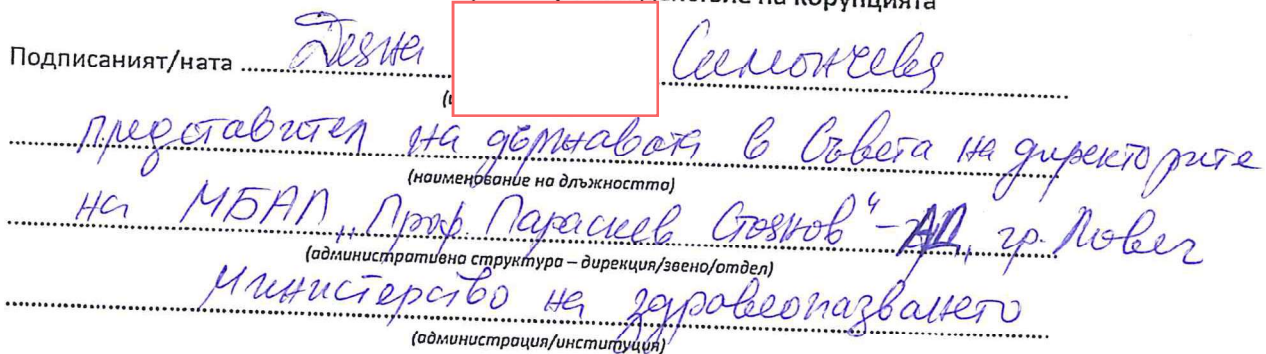 на корупцията
Подписаният/ната Деяна Симончева
представител на държавата в Съвета на директорите
(наименование на длъжността)
на МБАЛ „Проф. Параскев Стоянов“ - АД, гр. Ловеч
(административна структура – дирекция/звено/отдел)
Министерство на здравеопазването
(администрация/институция)